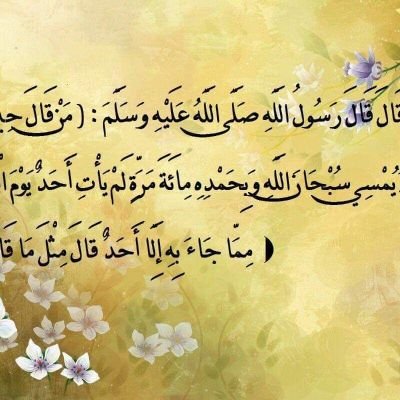 قَالَ قَالَ رَسُولُ اللَّهِ صَلَّى اللَّهُ عَلَيْهِ وَسَلَّمَ : ( مَنْ قَالَ
يُمْسِي سُبْحَانَ اللَّهِ وَبِحَمْدِهِ مِائَةَ مَرَّةٍ لَمْ يَأْتِ أَحَدٌ يَوْمَ
مِمَّا جَاءَ بِهِ إِلَّا أَحَدٌ قَالَ مِثْلَ مَا